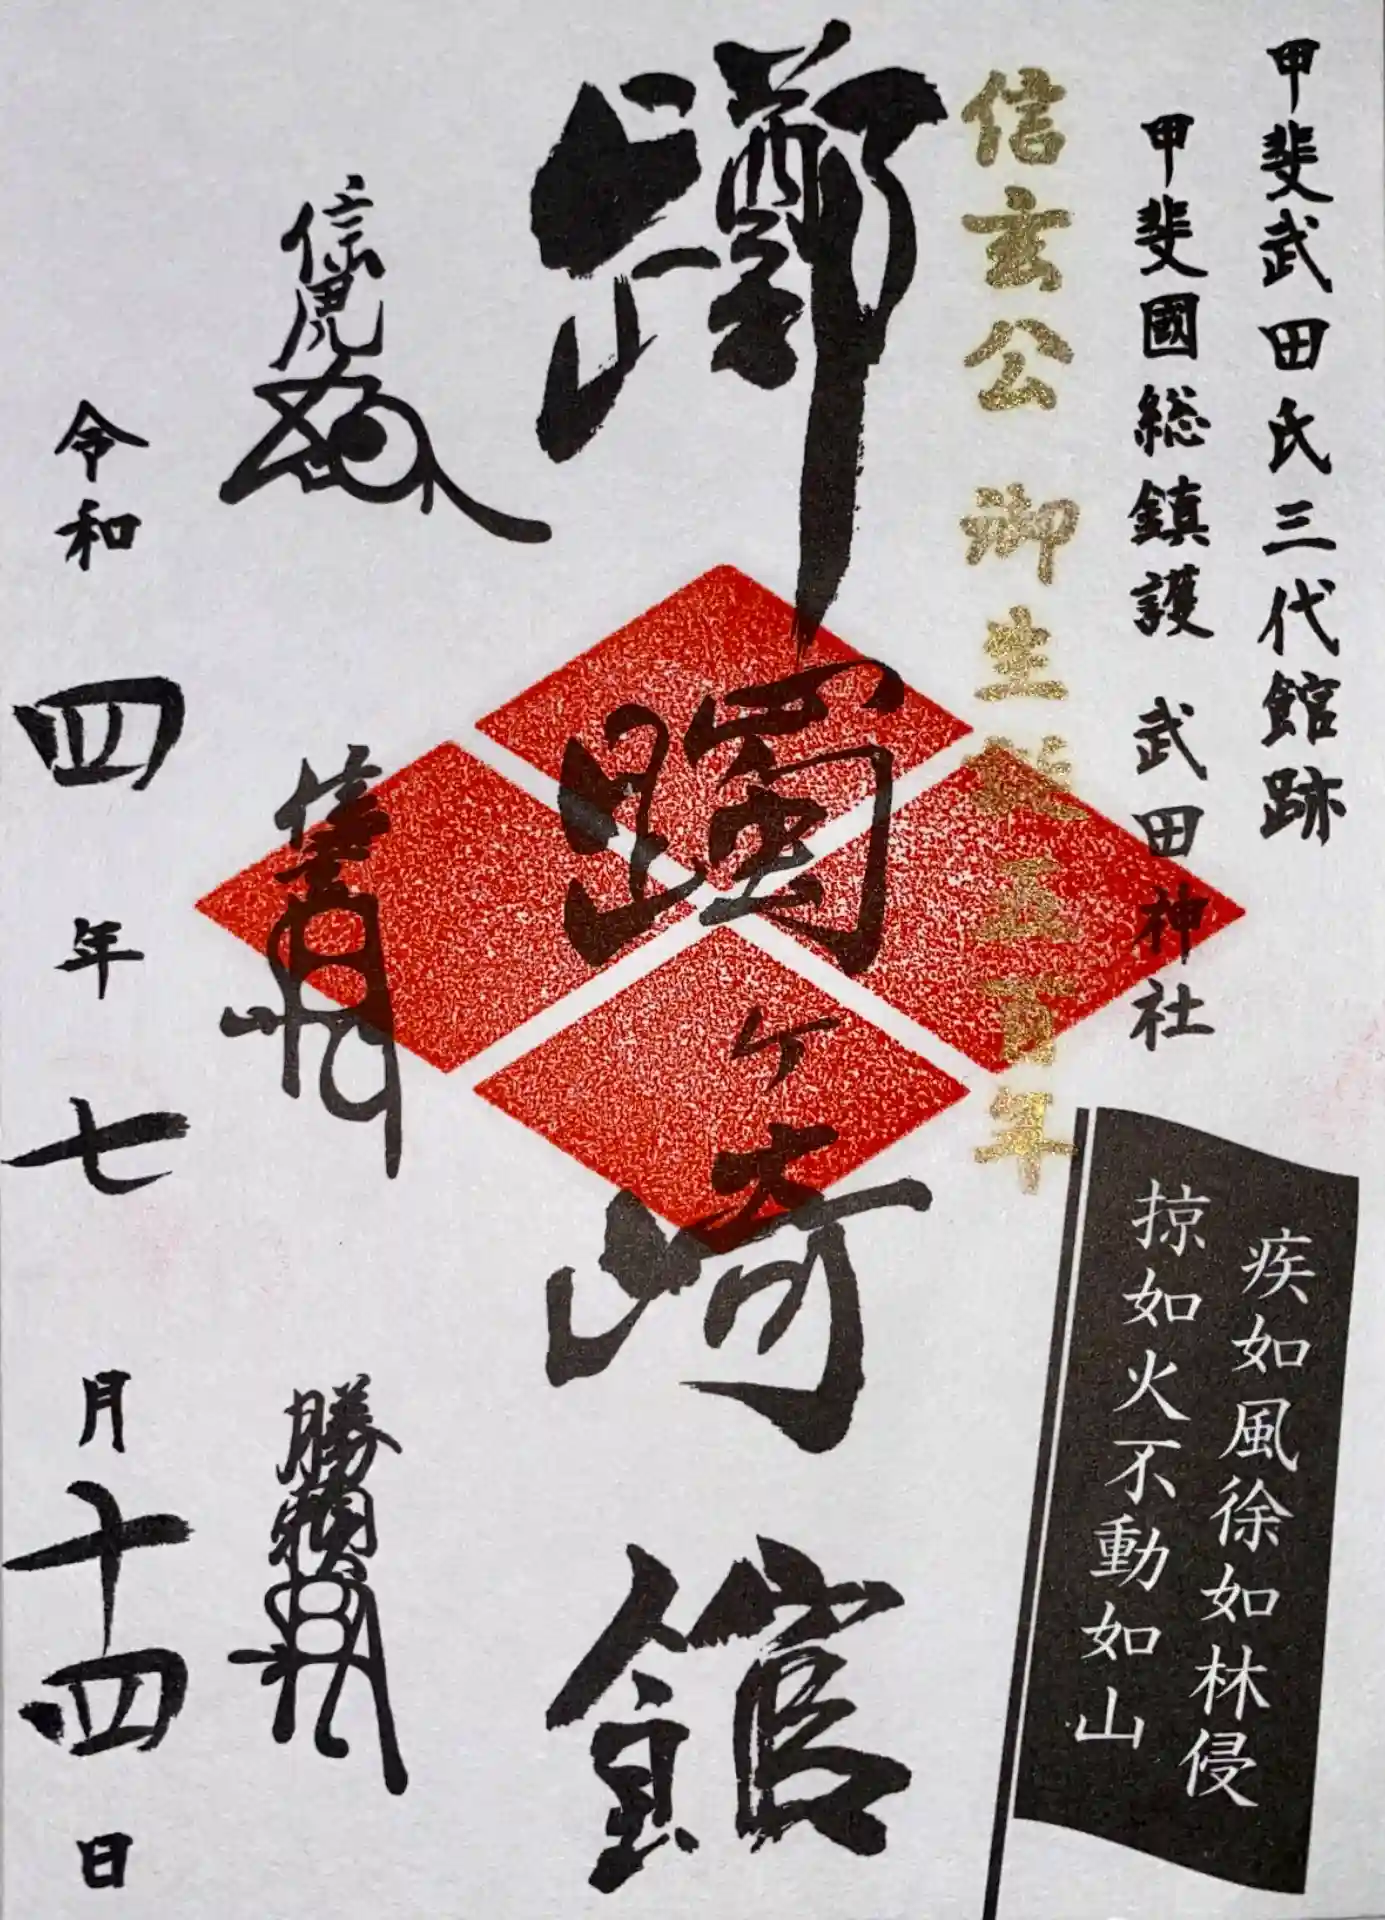 甲斐武田氏三代館跡
甲斐國総鎮護 武田神社
信玄公 御生誕五百年
躑躅ヶ崎館
信虎
信玄
勝頼
令和四年七月十四日
疾如風徐如林侵
掠如火不動如山